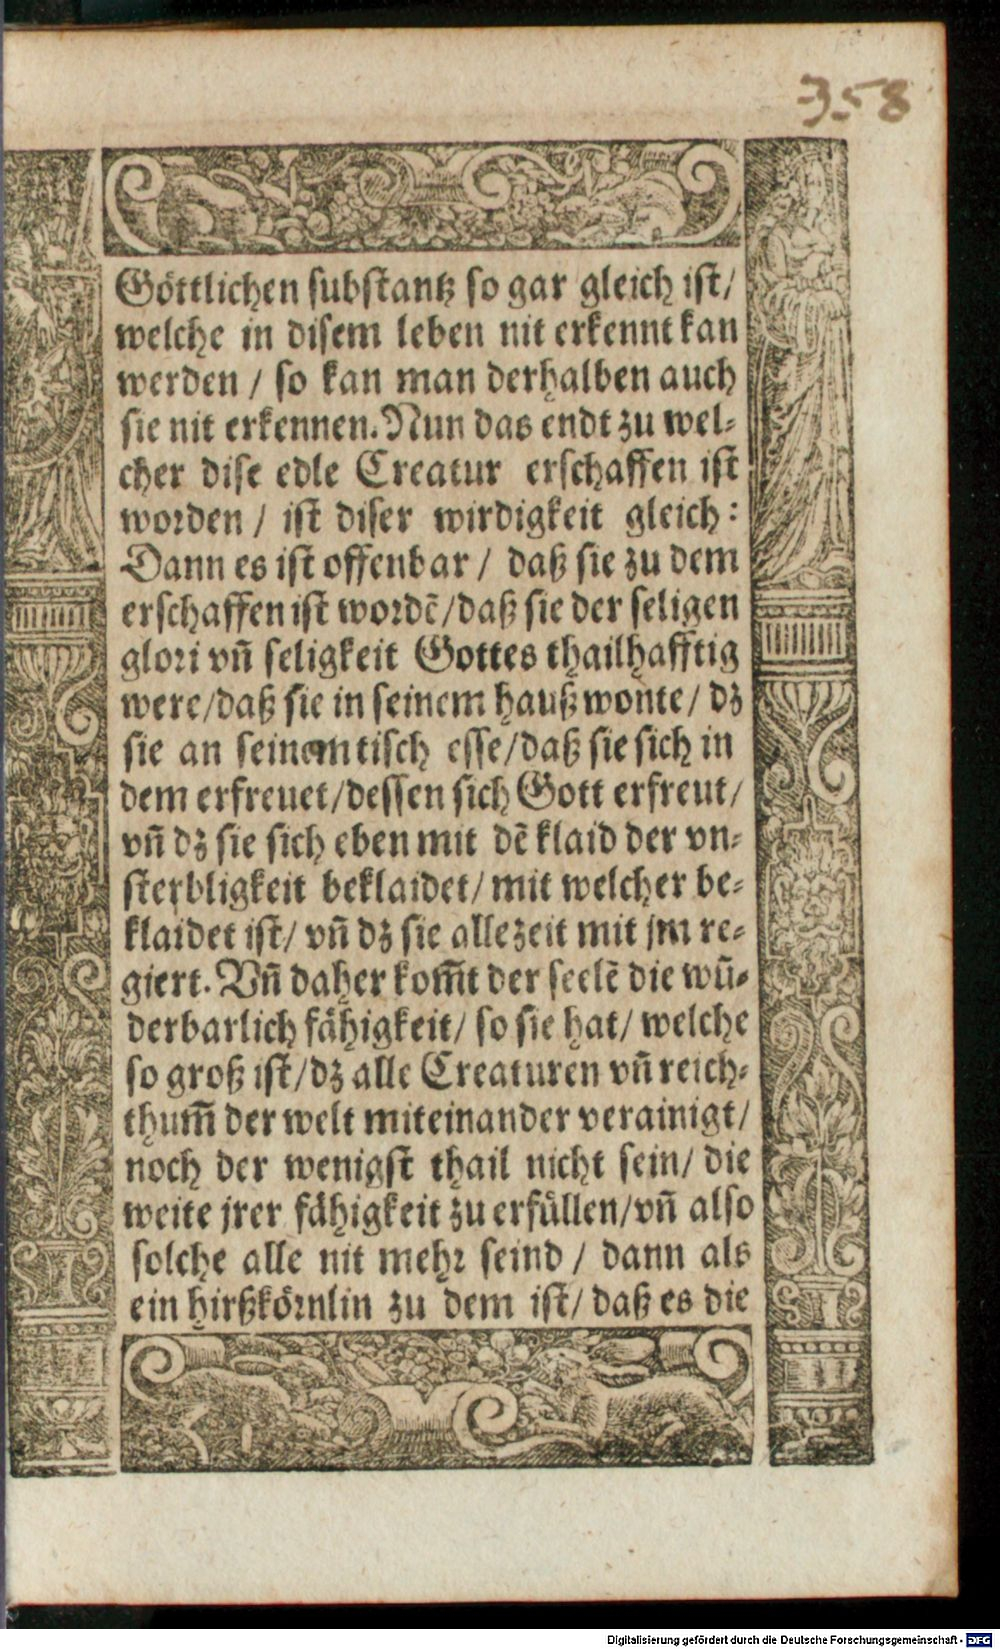 358
Göttlichen substantz so gar gleich ist/
welche in disem leben nit erkennt kan
werden / so kan man derhalben auch
sie nit erkennen. Nun das endt zu wel-
cher dise edle Creatur erschaffen ist
worden / ist diser wirdigkeit gleich:
Dann es ist offenbar / daß sie zu dem
erschaffen ist wordẽ/daß sie der seligen
glori vñ seligkeit Gottes thailhafftig
were/daß sie in seinem hauß wonte/ dz
sie an seinem tisch esse/daß sie sich in
dem erfreuet/dessen sich Gott erfreut/
vñ dz sie sich eben mit dẽ klaid der vn-
sterbligkeit beklaidet/ mit welcher be-
klaidet ist/ vñ dz sie alle zeit mit jm re-
giert. Vñ daher kom̃t der seelẽ die wũ-
derbarlich fähigkeit/ so sie hat/ welche
so groß ist/dz alle Creaturen vñ reich-
thum̃ der welt miteinander verainigt/
noch der wenigst thail nicht sein/ die
weite jrer fähigkeit zu erfüllen/vñ also
solche alle nit mehr seind / dann als
ein hirßkörnlin zu dem ist/ daß es die
Digitalisierung gefördert durch die Deutsche Forschungsgemeinschaft - DFG